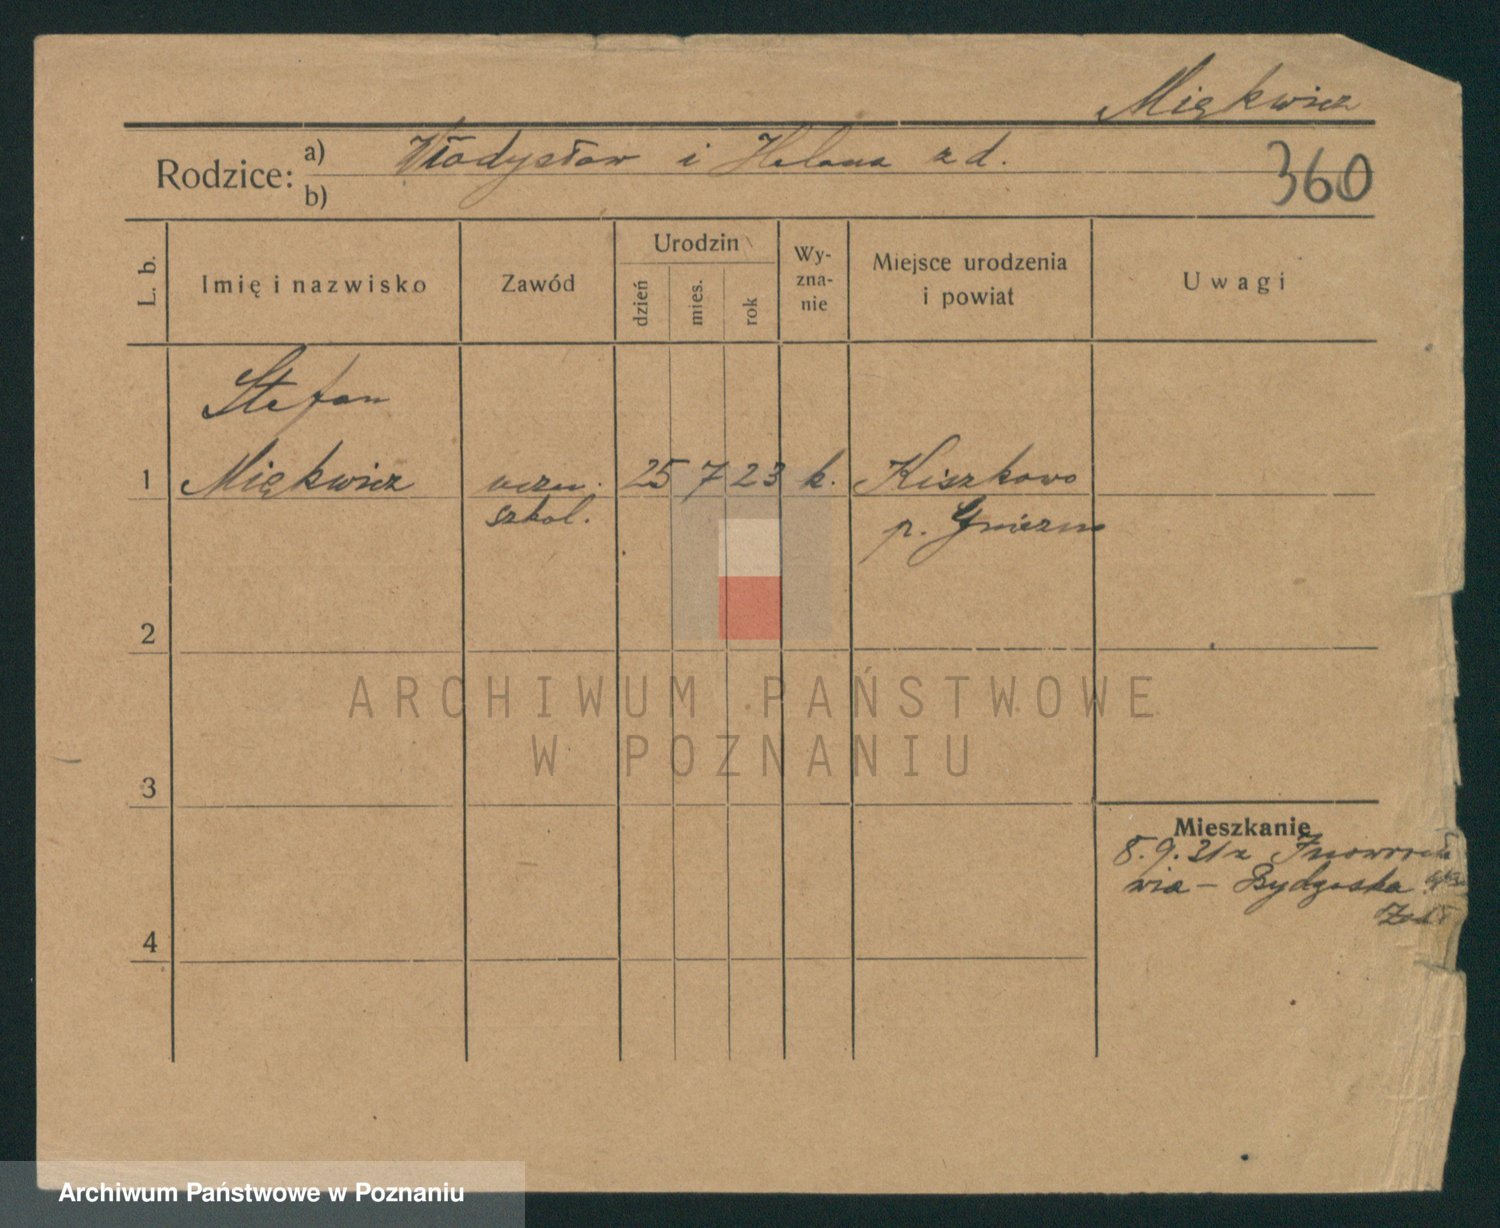 Miękwicz
Rodzice: a) Władysław i Helena z d.
b)
360
L. b.
Imię i nazwisko
Zawód
Urodzin
dzień
mies.
rok
Wy-
zna-
nie
Miejsce urodzenia
i powiat
Uwagi
Stefan
1 Miękwicz uczeń. 25 7 23 k. Kiszkowo
szkol. p. Gniezno
2
3
4
Mieszkanie
8.9.31 z
wia - Bydgoska
ARCHIWUM PAŃSTWOWE
W POZNANIU
Archiwum Państwowe w Poznaniu